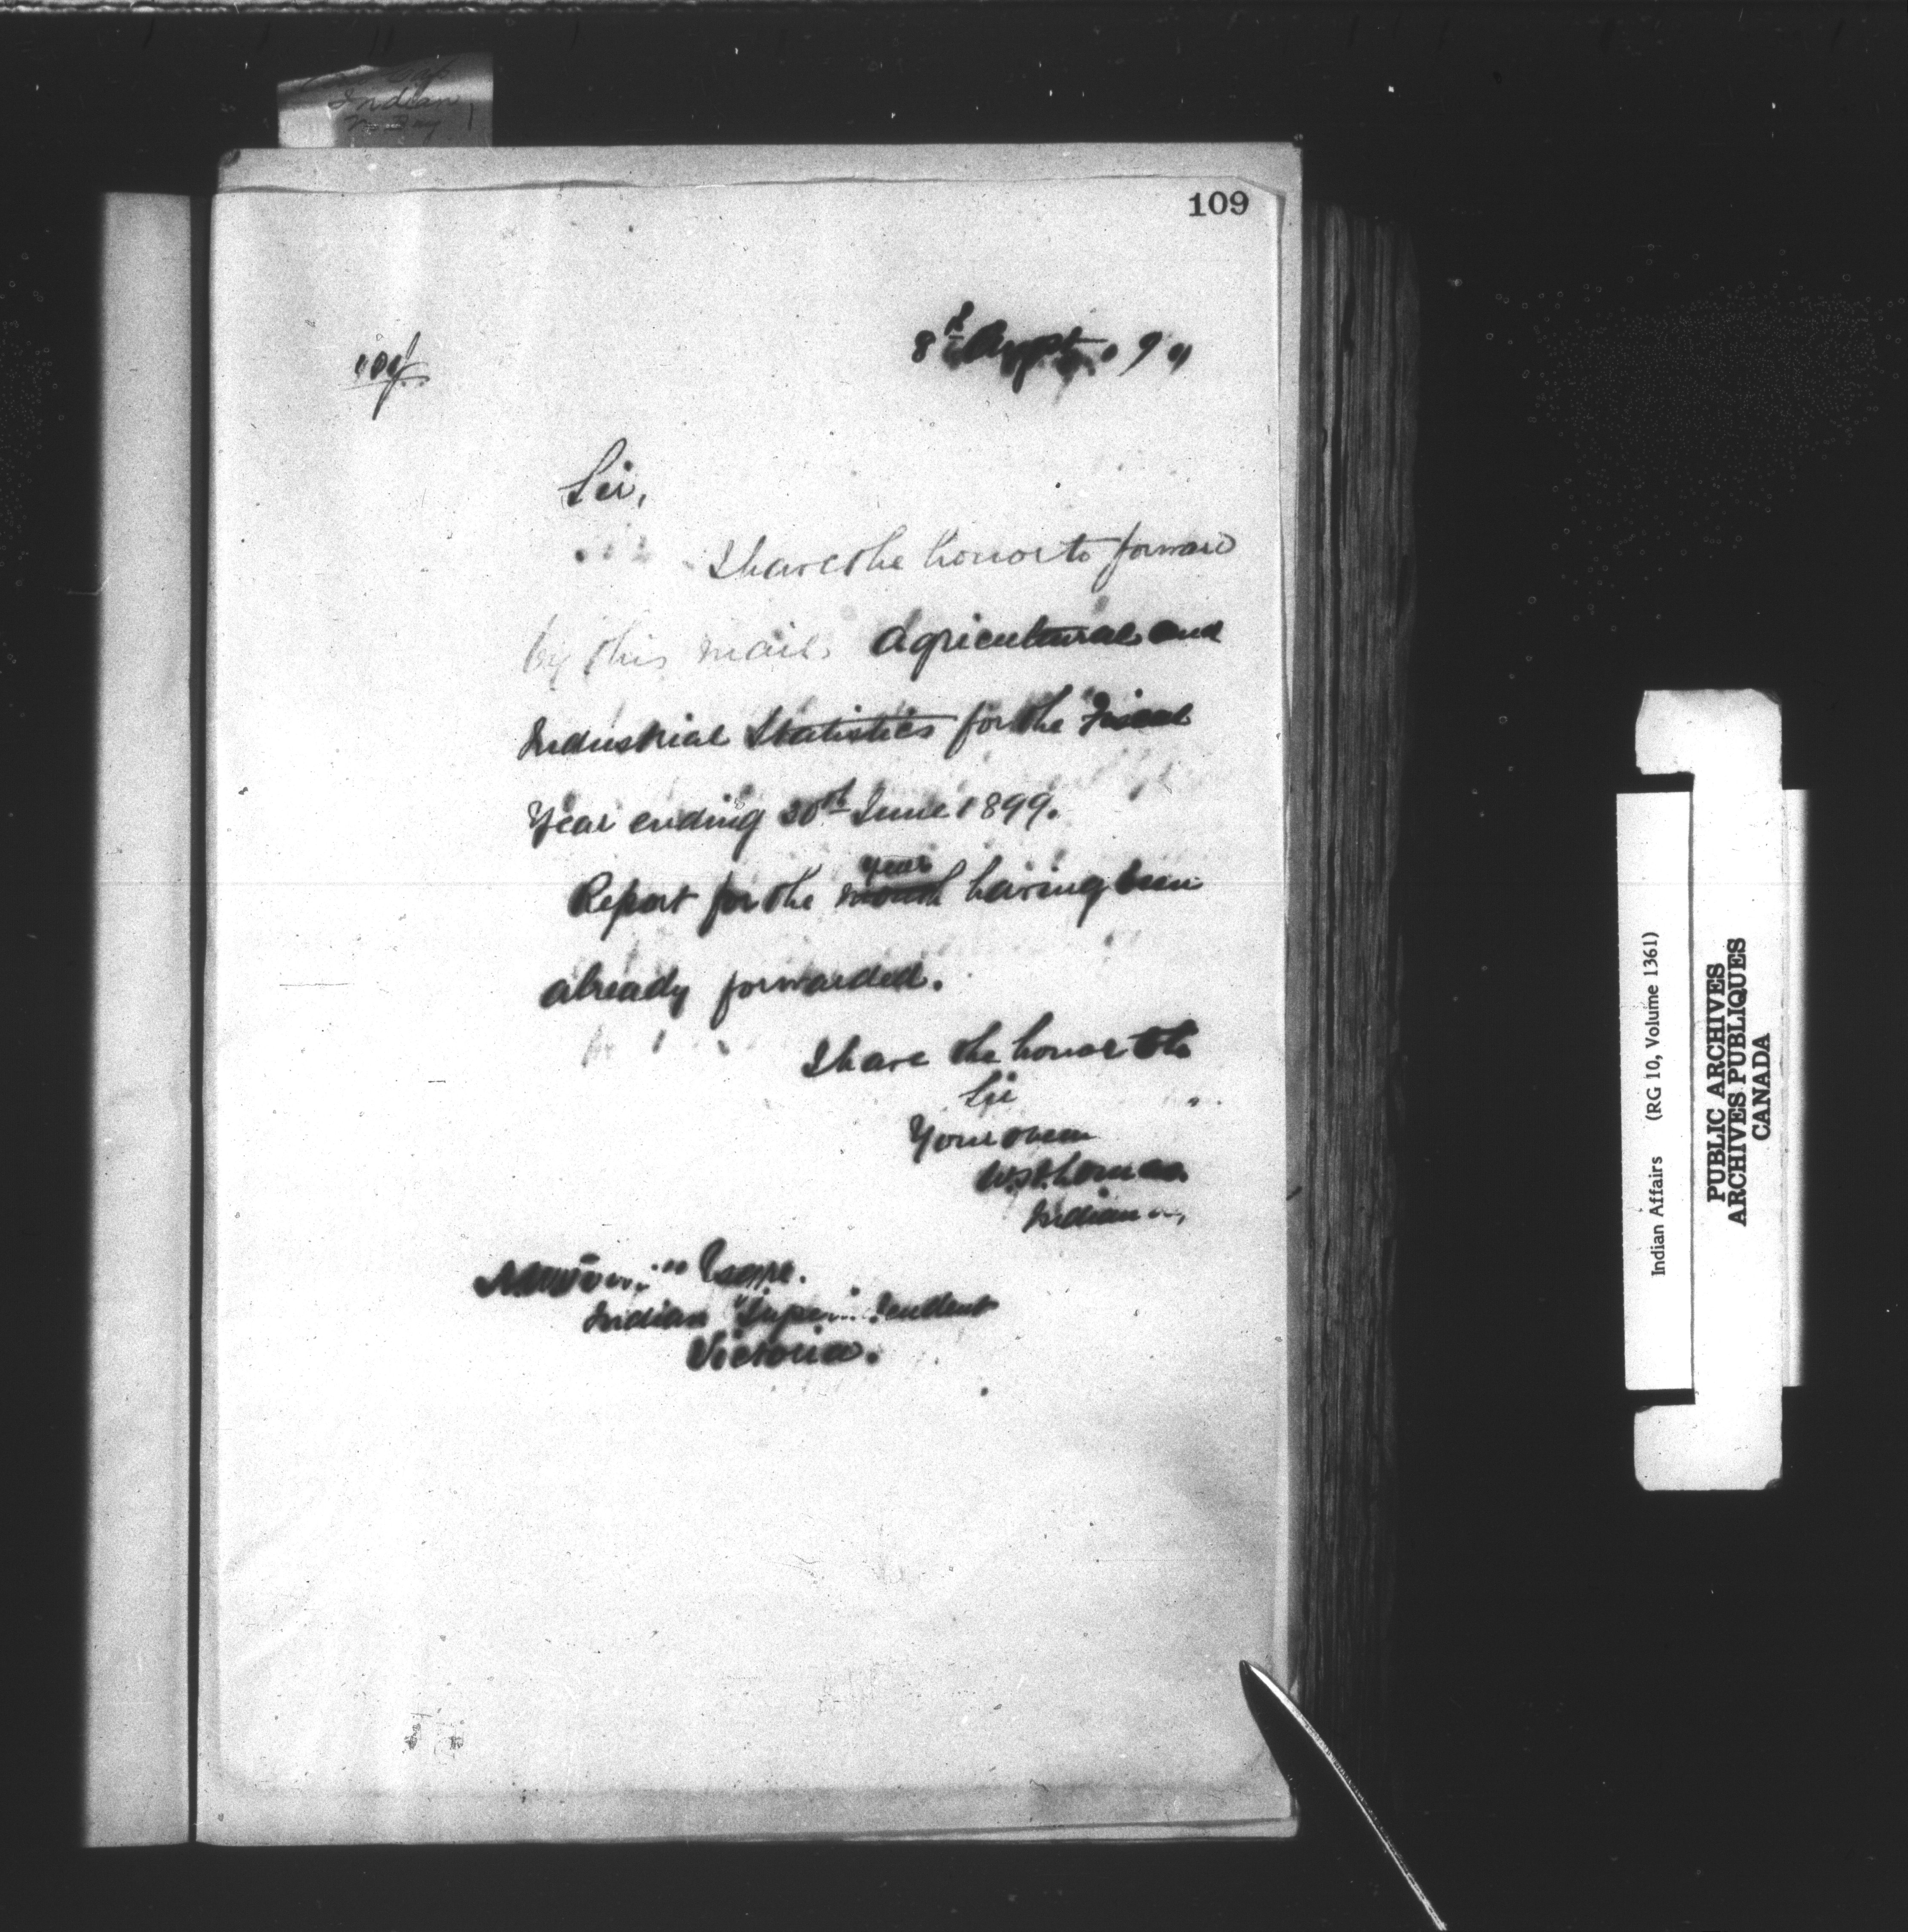 Indian
109
109
8th 99
Sir,
I have the honor to forward
by this mail Agricultural and
Industrial Statistics for the Fiscal
Year ending 30th June 1899.
year
Report for the month having been
already forwarded.
I have the honor to
Sir
Your
Indian
Esqre.
Indian Superintendent
Victoria.
Indian Affairs (RG 10, Volume 1361)
PUBLIC ARCHIVES
ARCHIVES PUBLIQUES
CANADA